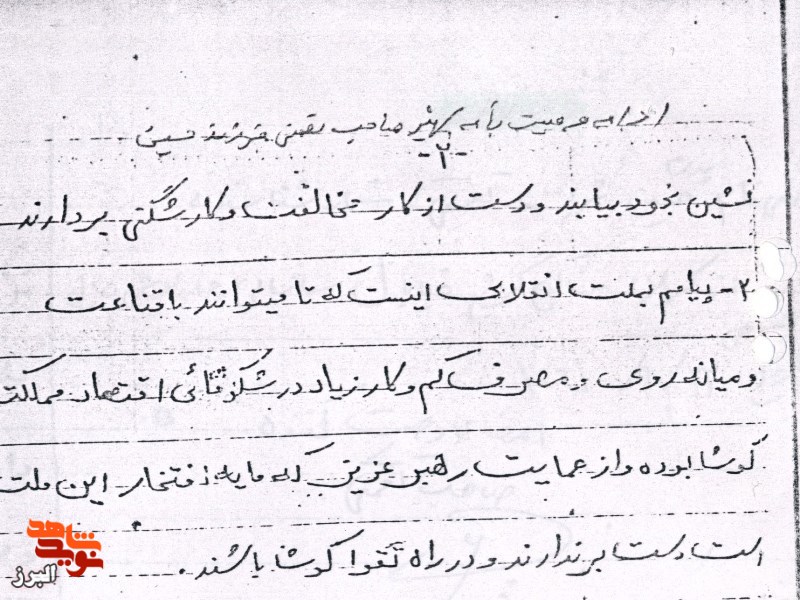 ادامه وصیت نامه بهنیر صاحب یقینی فرزند حسین
-۲-
نشین بخود بیایند و دست از کار مخالفت و کارشگنی بردارند
۲- پیام بملت انقلابی اینست که تا میتوانند باقناعت
و میانه روی و مصرف کم و کار زیاد در شکوفائی اقتصاد مملکت
کوشا بوده و از حمایت رهبر عزیز که مایه افتخار این ملت
است دست برندارند و در راه تقوا کوشا باشند.
نوید شاهد
البرز